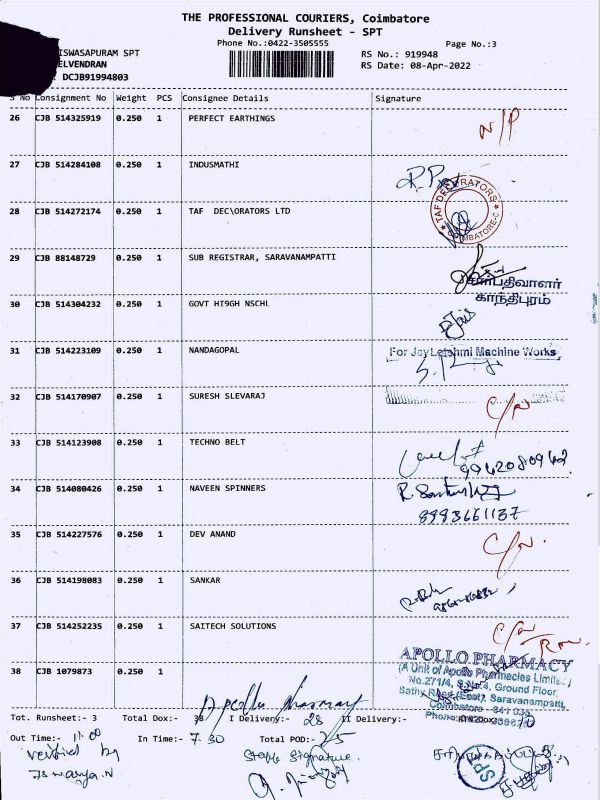 THE PROFESSIONAL COURIERS, Coimbatore
Delivery Runsheet - SPT
Phone No.:0422-3505555 Page No.:3
ISWASAPURAM SPT RS No.: 919948
ELVENDRAN RS Date: 08-Apr-2022
: DCJB91994803
S No Consignment No Weight PCS Consignee Details Signature
26 CJB 514325919 0.250 1 PERFECT EARTHINGS N/P
27 CJB 514284108 0.250 1 INDUSMATHI
TAF DECORATORS
28 CJB 514272174 0.250 1 TAF DEC\ORATORS LTD
COIMBATORE
29 CJB 88148729 0.250 1 SUB REGISTRAR, SARAVANAMPATTI
சார்பதிவாளர்
காந்திபுரம்
30 CJB 514304232 0.250 1 GOVT HI9GH NSCHL
31 CJB 514223109 0.250 1 NANDAGOPAL For JeyLetshmi Machine Works,
32 CJB 514170907 0.250 1 SURESH SLEVARAJ C/N
33 CJB 514123908 0.250 1 TECHNO BELT
9942080942
34 CJB 514080426 0.250 1 NAVEEN SPINNERS
8993661137
35 CJB 514227576 0.250 1 DEV ANAND C/N.
36 CJB 514198083 0.250 1 SANKAR
37 CJB 514252235 0.250 1 SAITECH SOLUTIONS C/N
APOLLO PHARMACY
38 CJB 1079873 0.250 1
(A Unit of Apollo Pharmacies Limited)
No.271/4, S.No.4, Ground Floor,
Sathy Road (East), Saravanampatti,
Coimbatore - 641 035
Apollo Pharmacy
Tot. Runsheet:- 3 Total Dox:- 38 I Delivery:- 28 II Delivery:-
Out Time:- 11.00 In Time:- 7.30 Total POD:- 25
verified by Staff Signature.
SPT